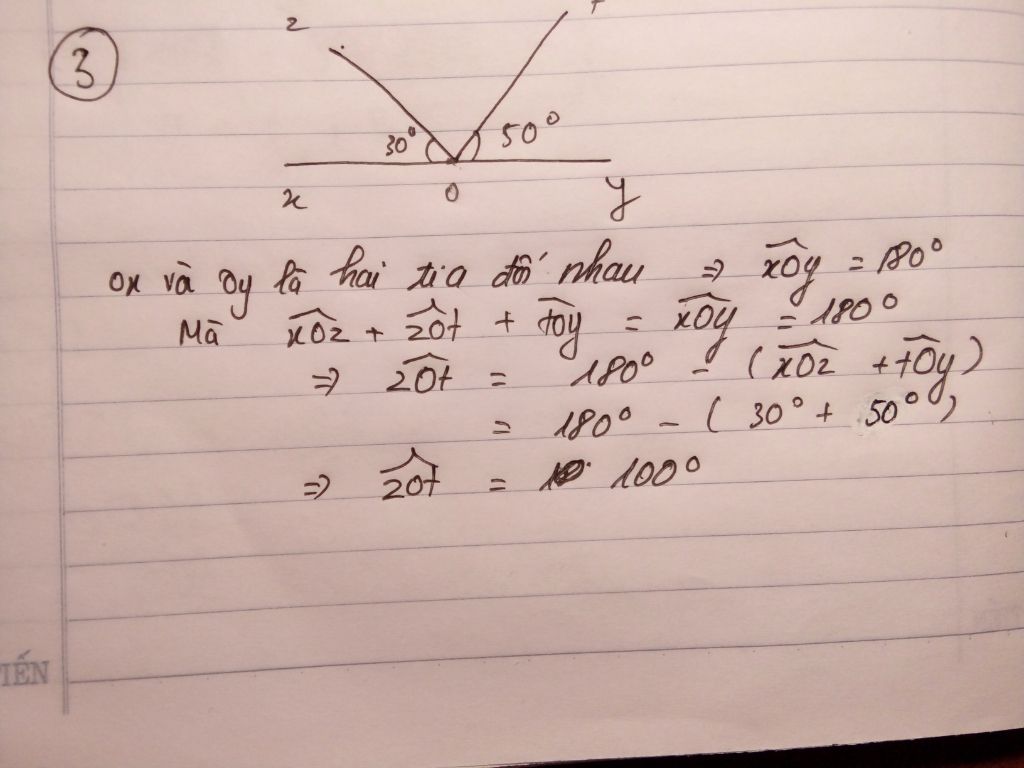 3
z
t
30° 50°
x O y
Ox và Oy là hai tia đối nhau ⇒ xOy = 180°
Mà xOz + zOt + tOy = xOy = 180°
⇒ zOt = 180° - (xOz + tOy)
= 180° - (30° + 50°)
⇒ zOt = 100°
TIẾN